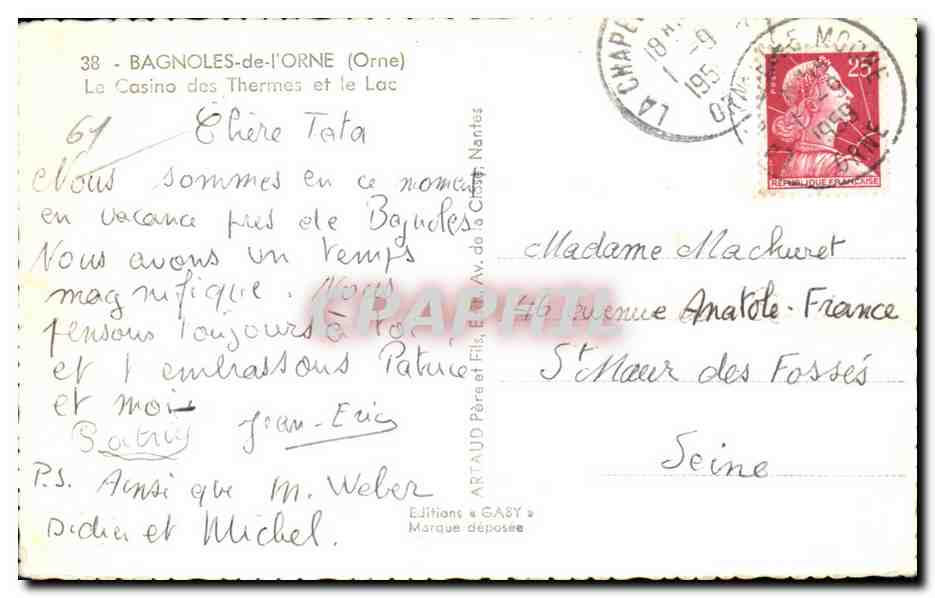 38 - BAGNOLES-de-l'ORNE (Orne)
Le Casino des Thermes et le Lac
61
Chère Tata
Nous sommes en ce moment
en vacance près de Bagnoles
Nous avons un temps
magnifique. Nous
pensons toujours à toi
et t embrassons Patrice
et moi
Patrice Jean-Eric
P.S. Ainsi que M. Weber
Didier et Michel.
Editions « GABY »
Marque déposée
ARTAUD Père et Fils, Av. de la Close, Nantes
CPAPHIL
LA CHAPEL
18 H
1 -9
195
ORNE
1959
ORNE
25F
REPUBLIQUE FRANÇAISE
Madame Machuret
46 avenue Anatole-France
St Maur des Fossés
Seine